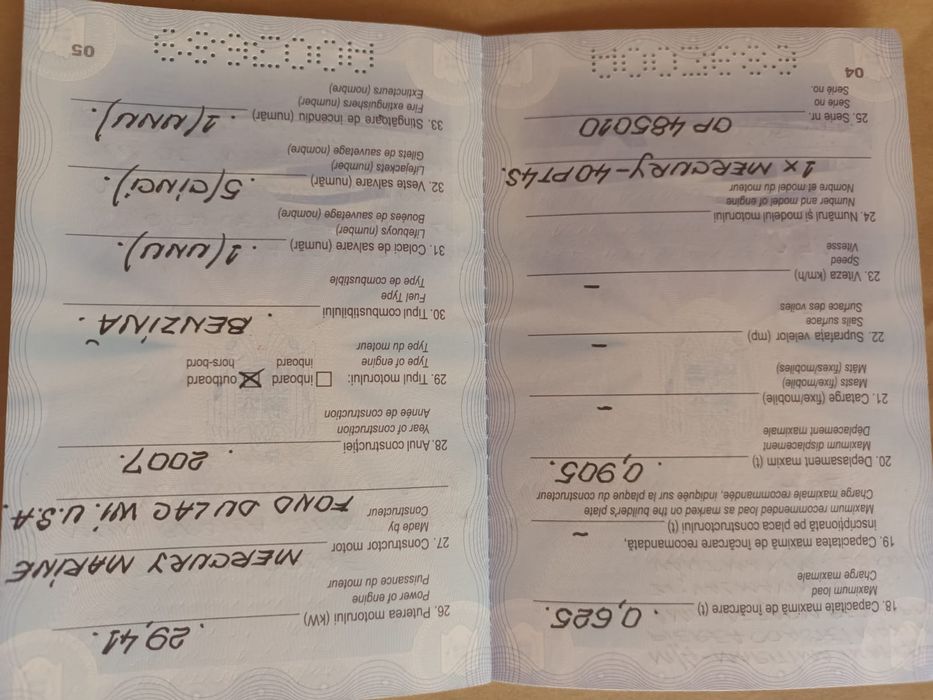 18. Capacitate maximă de încărcare (t) 0,625.
Maximum load
Charge maximale
19. Capacitatea maximă de încărcare recomandată,
inscripționată pe placa constructorului (t) –
Maximum recommended load as marked on the builder's plate
Charge maximale recommandée, indiquée sur la plaque du constructeur
20. Deplasament maxim (t) 0,905.
Maximum displacement
Déplacement maximale
21. Catarge (fixe/mobile) –
Masts (fixe/mobile)
Mâts (fixes/mobiles)
22. Suprafața velelor (mp) –
Sails surface
Surface des voiles
23. Viteza (km/h) –
Speed
Vitesse
24. Numărul și modelul motorului
Number and model of engine
Nombre et model du moteur
1x MERCURY-40PT4S.
25. Serie nr. OP 485010
Serie no
Serié no.
04
26. Puterea motorului (kW) . 29,41.
Power of engine
Puissance du moteur
27. Constructor motor MERCURY MARINE
Made by
Constructeur FOND DU LAC WI. U.S.A.
28. Anul construcției . 2007.
Year of construction
Année de construction
29. Tipul motorului: inboard outboard
Type of engine inboard hors-bord
Type du moteur
30. Tipul combustibilului . BENZINĂ .
Fuel Type
Type de combustible
31. Colaci de salvare (număr) . 1(UNU).
Lifebuoys (number)
Bouées de sauvetage (nombre)
32. Veste salvare (număr) . 5(CINCI).
Lifejackets (number)
Gilets de sauvetage (nombre)
33. Stingătoare de incendiu (număr) . 1(UNU).
Fire extinguishers (number)
Extincteurs (nombre)
05